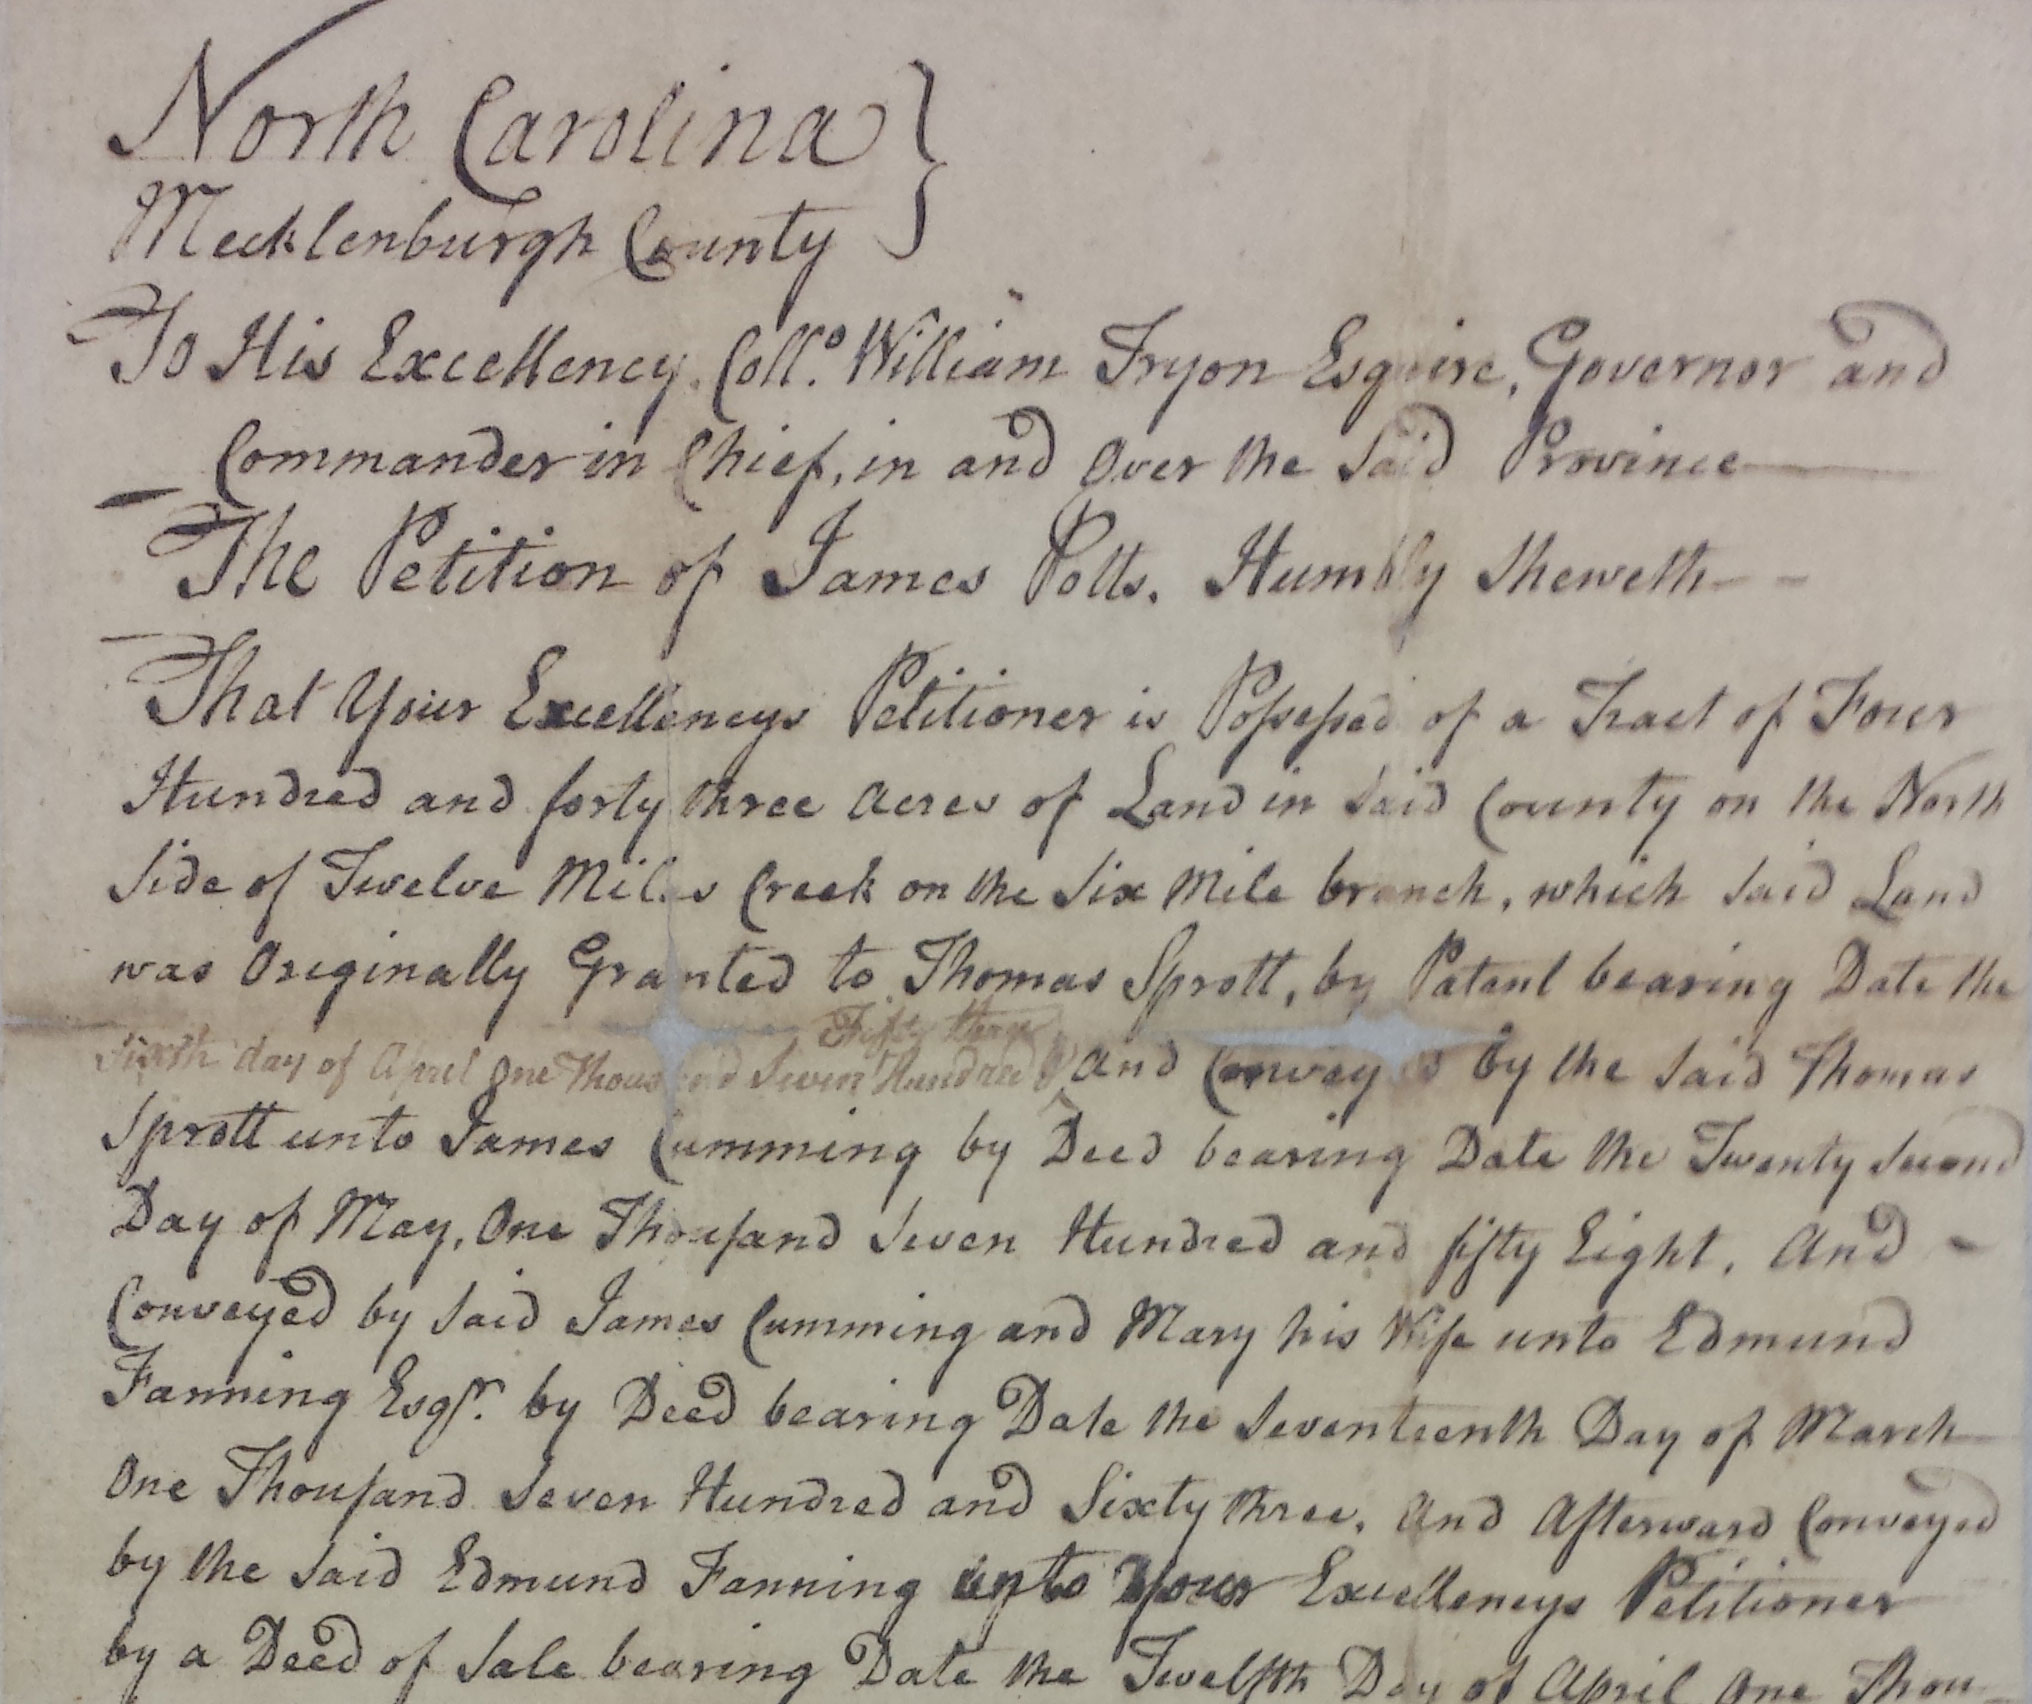 North Carolina }
Mecklenburgh County
To His Excellency Coll.o William Tryon Esquire, Governor and
Commander in Chief, in and Over the Said Province
The Petition of James Potts. Humbly Sheweth
That Your Excellencys Petitioner is Poſseſsed of a Tract of Four
Hundred and forty three Acres of Land in Said County on the North
Side of Twelve Miles Creek on the Six Mile branch, which Said Land
was Originally Granted to Thomas Sprott, by Patent bearing Date the
Fifty three
Sixth day of April One Thousand Seven Hundred & and Conveyed by the Said Thomas
Sprott unto James Cumming by Deed bearing Date the Twenty Second
Day of May, One Thouſand Seven Hundred and fifty Eight, And
Conveyed by Said James Cumming and Mary his Wife unto Edmund
Fanning Esqr. by Deed bearing Date the Seventeenth Day of March
One Thouſand Seven Hundred and Sixty three, And Afterward Conveyed
by the Said Edmund Fanning unto Your Excellencys Petitioner
by a Deed of Sale bearing Date the Twelfth Day of April One Thou